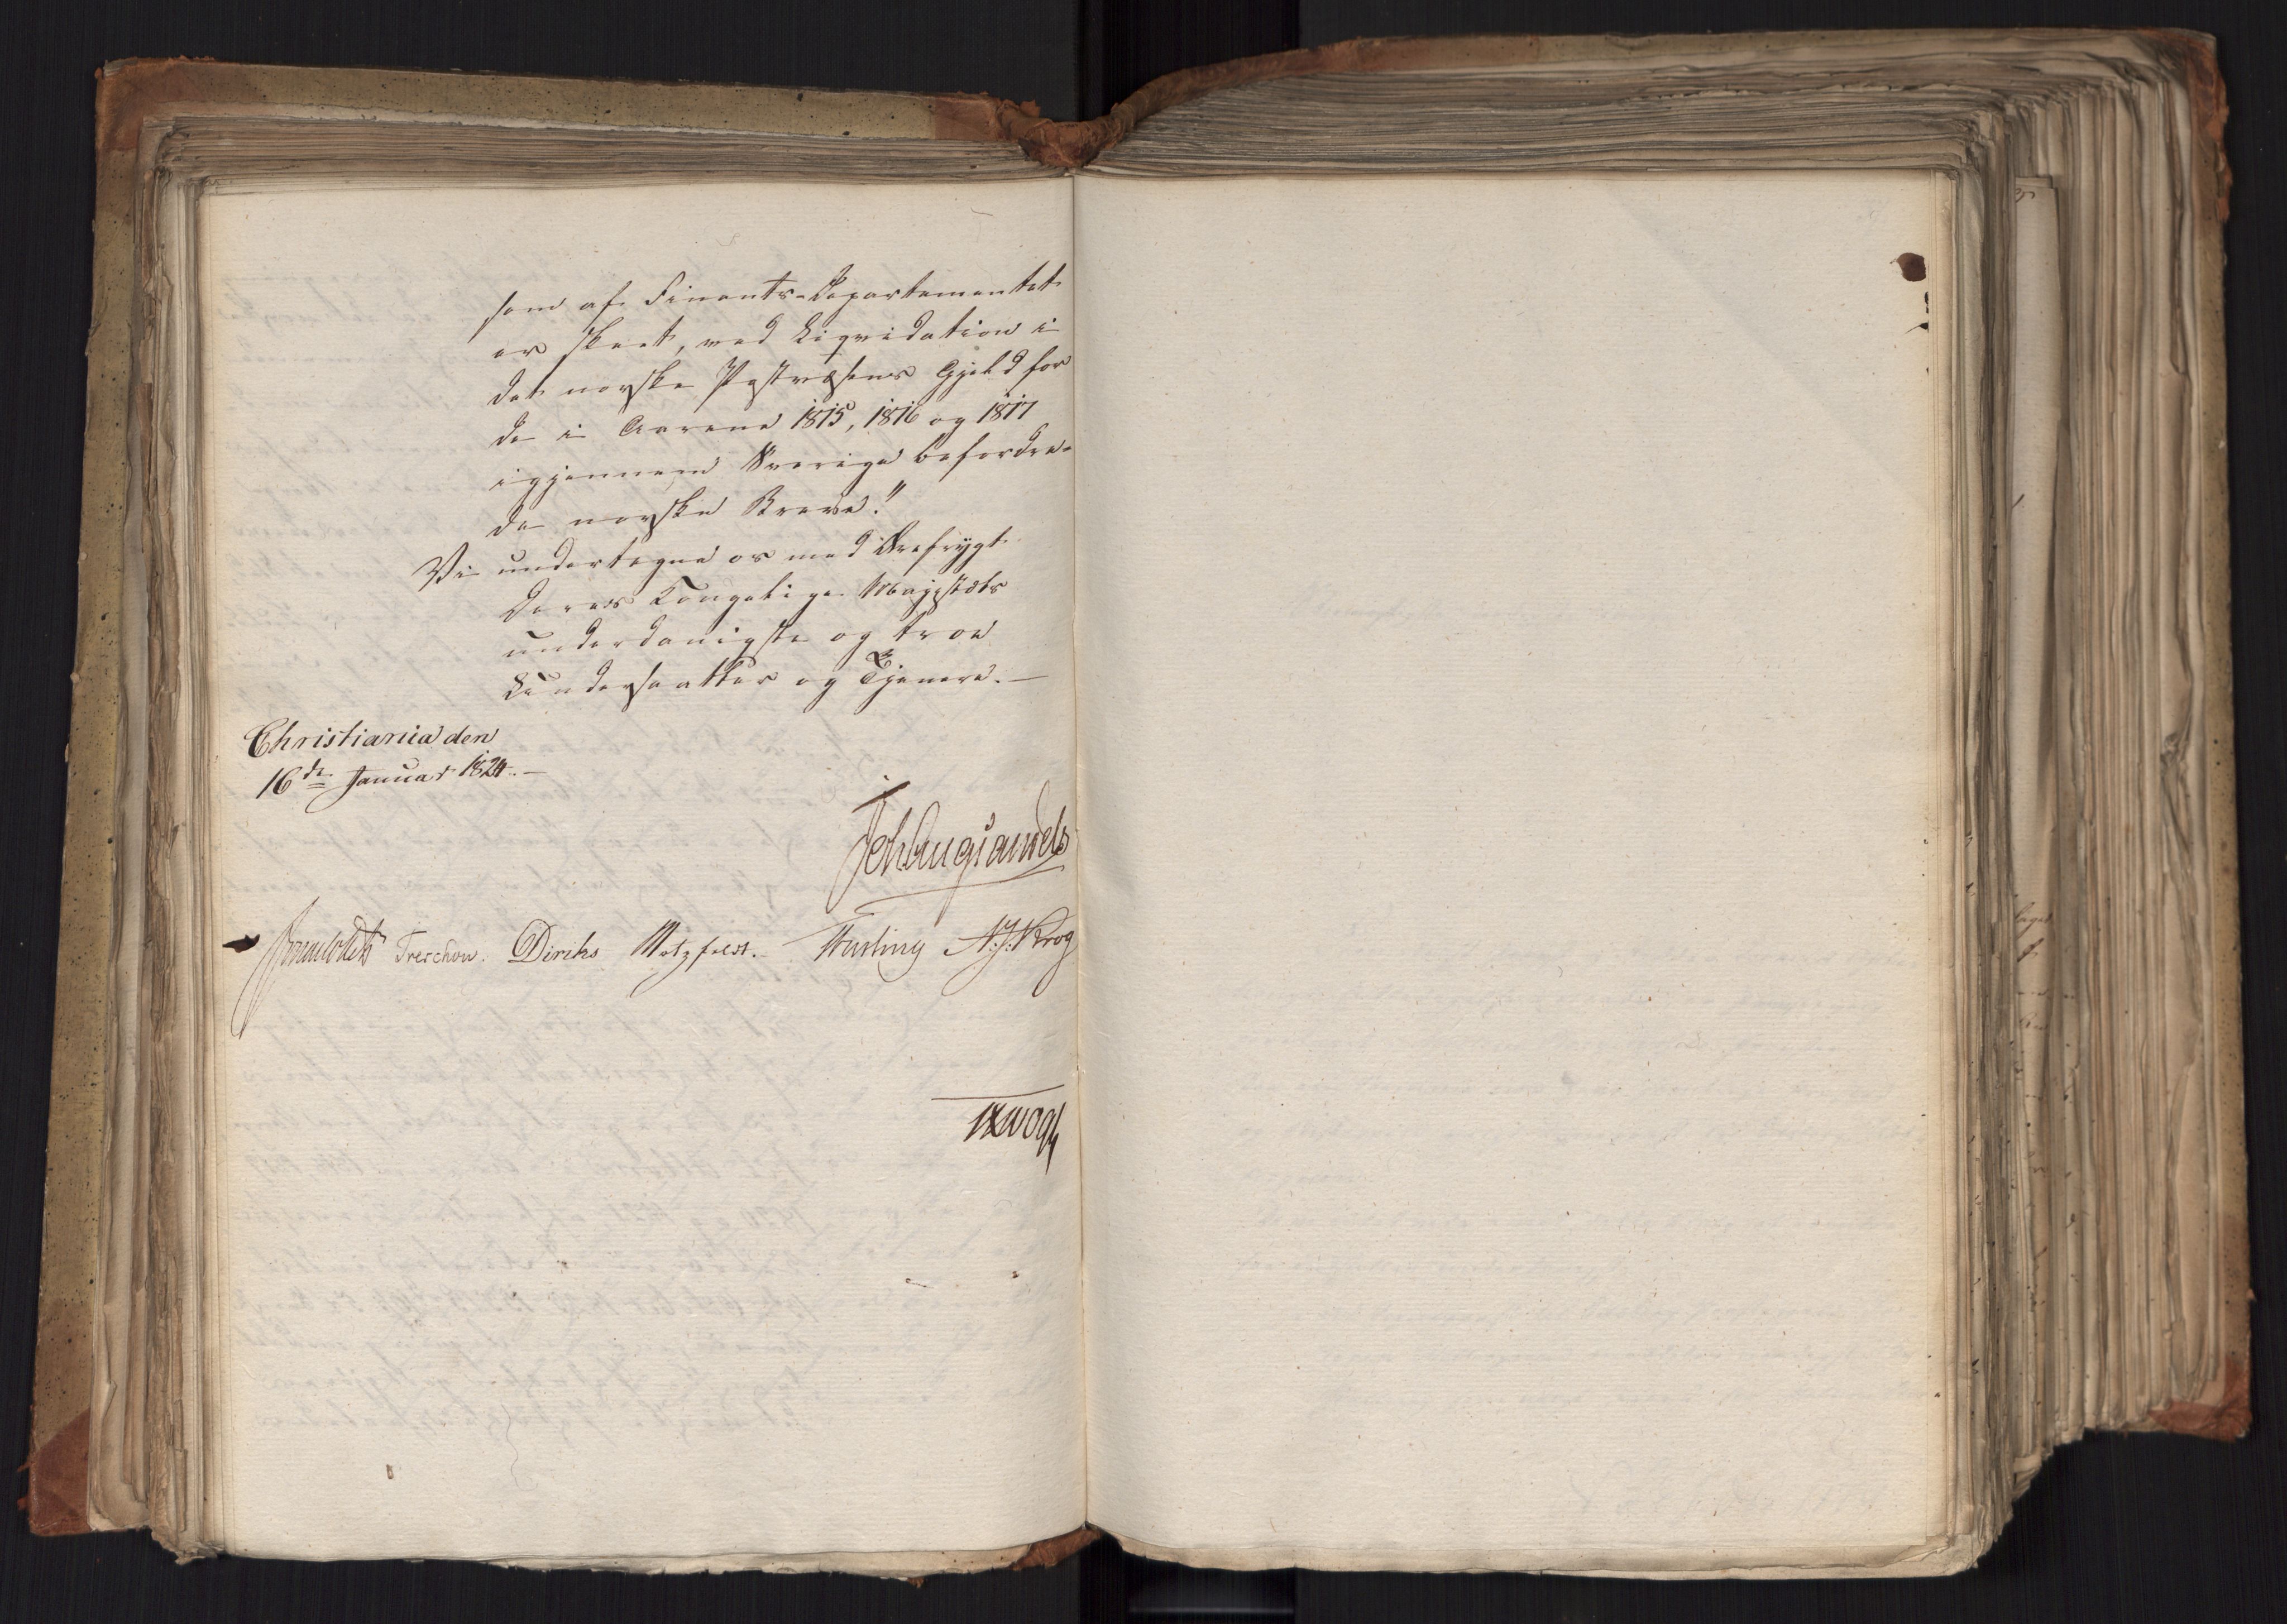 som af Finants-Departementet
er skeet, med Liqvidation i
det norske Postvæsens Gjeld for
de i Aarene 1815, 1816 og 1817
igjennem Sverige befordre-
de norske Breve."
Vi undertegne os med Ærefrygt
Deres Kongelige Majestæts
underdanigste og troe
Undersaatter og Tjenere.—
Christiania den
16de Januar 1824.—
Joh Aug Sandels
Sommerhielm Treschow. Diriks Motzfeldt. Fasting A. J. Krog